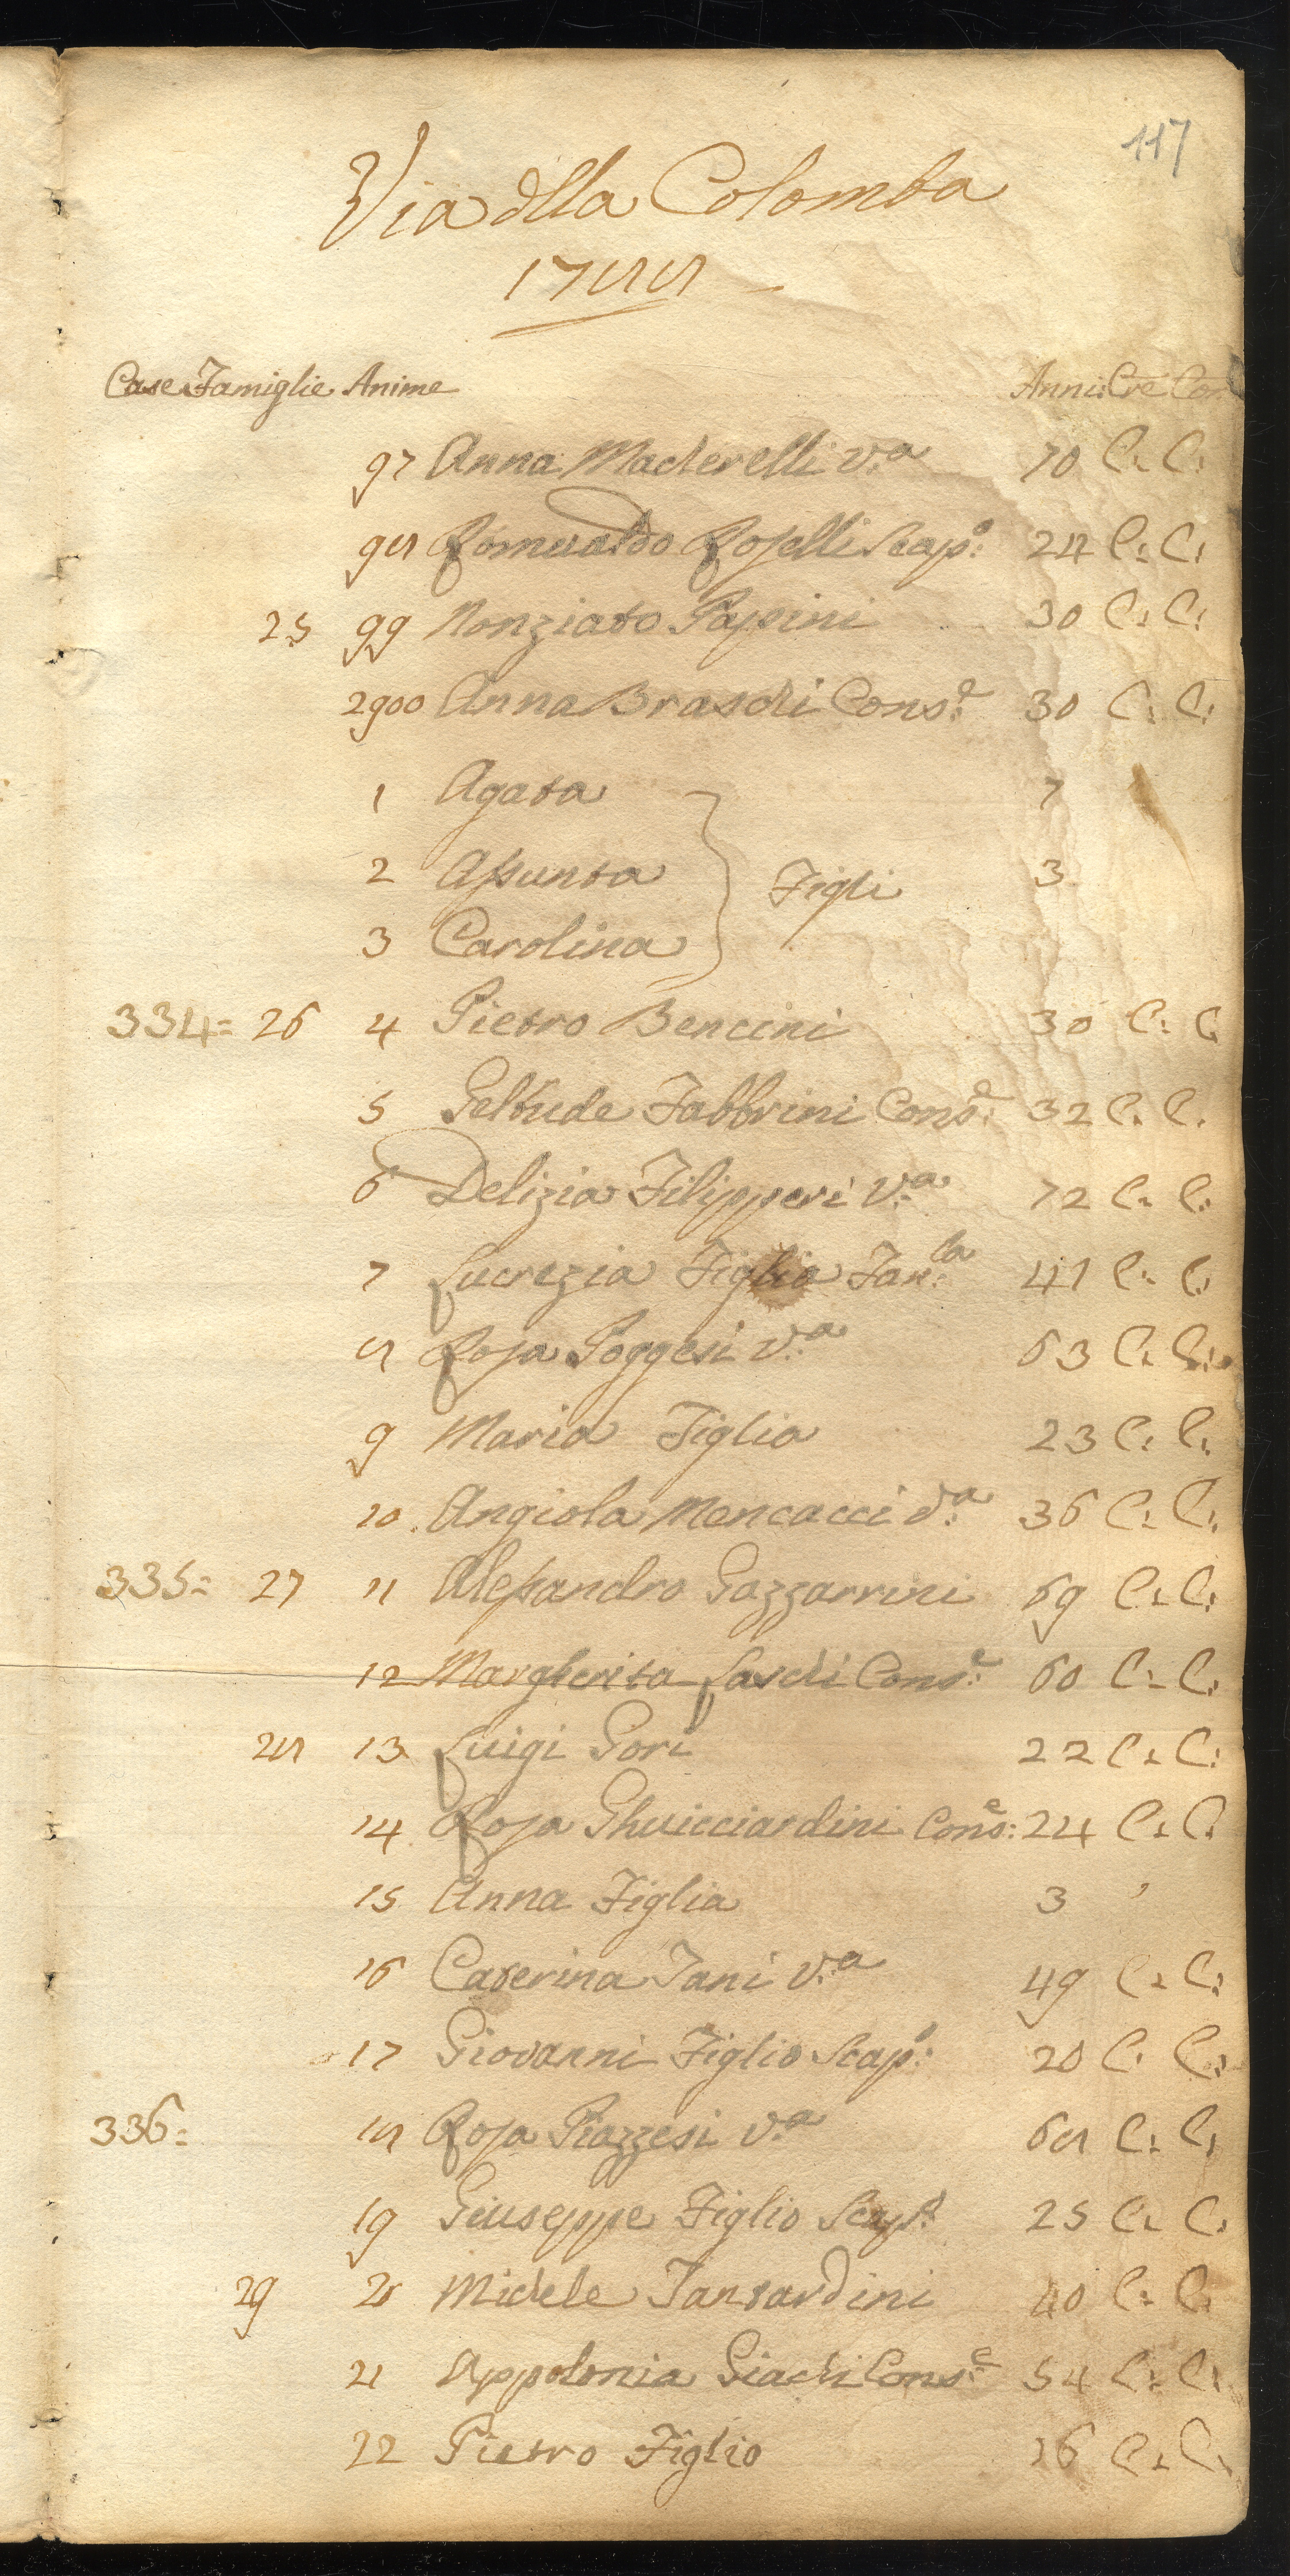 117
Via dlla Colomba
1788
Case Famiglie Anime Anni: Cre Con
97 Anna Macherelli v.a 70 C: C:
98 Romualdo Roselli Scap.o: 24 C: C:
25 99 Nonziato Papini 30 C: C:
2900 Anna Braschi Cons.e 30 C: C:
1 Agata 7
2 Assunta Figli 3
3 Carolina
334= 26 4 Pietro Bencini 30 C: C
5 Geltrude Fabbrini Cons.e 32 C: C:
6 Delizia Filipperi v.a 72 C: C:
7 Lucrezia Figlia Fan.la 41 C: C:
8 Rosa Poggesi v.a 63 C: C:
9 Maria Figlia 23 C: C:
10 Angiola Mencacci v.a 36 C: C:
335= 27 11 Alessandro Gazzarrini 69 C: C:
12 Margherita Laschi Cons.e 60 C: C:
28 13 Luigi Gori 22 C: C:
14 Rosa Ghuicciardini Cons.e: 24 C: C:
15 Anna Figlia 3
16 Caterina Fani v.a 49 C: C:
17 Giovanni Figlio Scap.o: 20 C: C:
336= 18 Rosa Piazzesi v.a 68 C: C:
19 Giuseppe Figlio Scap.o 25 C: C:
29 20 Michele Tantardini 40 C: C:
21 Appolonia Giachi Cons.e 54 C: C:
22 Pietro Figlio 16 C: C: